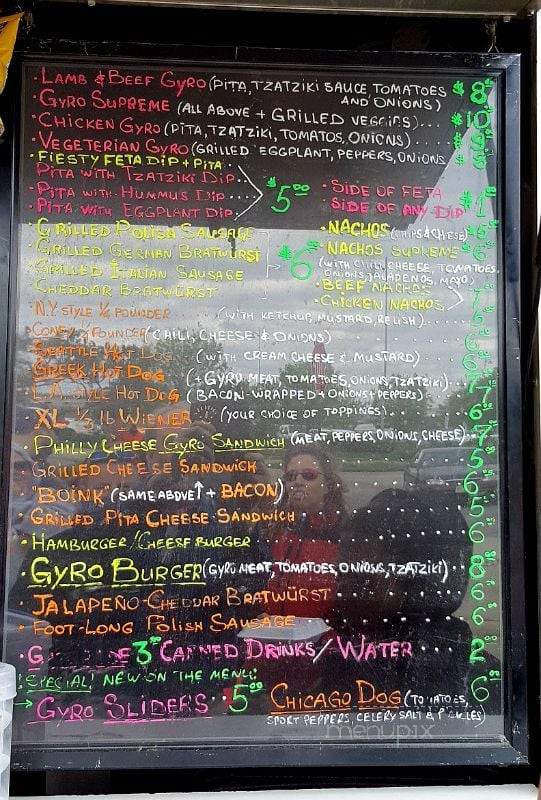 · LAMB & BEEF GYRO (PITA, TZATZIKI SAUCE TOMATOES AND ONIONS) $8
· GYRO SUPREME (ALL ABOVE + GRILLED VEGGIES)... $10
· CHICKEN GYRO (PITA, TZATZIKI, TOMATOS, ONIONS)...
· VEGETERIAN GYRO (GRILLED EGGPLANT, PEPPERS, ONIONS
· FIESTY FETA DIP + PITA..
PITA WITH TZATZIKI DIP..
· PITA WITH HUMMUS DIP... $5.00
· PITA WITH EGGPLANT DIP..
· SIDE OF FETA
SIDE OF ANY DIP $1
GRILLED POLISH SAUSAGE
GRILLED GERMAN BRATWÜRST
GRILLED ITALIAN SAUSAGE $6
CHEDDAR BRATWÜRST
· NACHOS (CHIPS & CHEESE)
· NACHOS SUPREME
(WITH CHILI CHEESE, TOMATOES,
ONIONS, JALAPENOS, MAYO)
· BEEF NACHOS
· CHICKEN NACHOS
· N.Y STYLE ¼ POUNDER (WITH KETCHUP, MUSTARD, RELISH)..
CONEY ¼ POUNDER (CHILI, CHEESE & ONIONS)
SEATTLE HOT DOG (WITH CREAM CHEESE & MUSTARD)
GREEK HOT DOG (+ GYRO MEAT, TOMATOES, ONIONS, TZATZIKI)..
L.A. STYLE HOT DOG (BACON-WRAPPED + ONIONS + PEPPERS)
· XL ⅓ lb WIENER (YOUR CHOICE OF TOPPINGS)... 6
· PHILLY CHEESE GYRO SANDWICH (MEAT, PEPPERS, ONIONS, CHEESE).. 7
· GRILLED CHEESE SANDWICH 5
· "BOINK" (SAME ABOVE↑ + BACON) 6
· GRILLED PITA CHEESE SANDWICH 5
· HAMBURGER / CHEESEBURGER 6
· GYRO BURGER (GYRO MEAT, TOMATOES, ONIONS, TZATZIKI) 8
· JALAPEÑO-CHEDDAR BRATWÜRST 6
· FOOT-LONG POLISH SAUSAGE 6
3 CANNED DRINKS / WATER ... 2
SPECIAL! NEW ON THE MENU!
→ GYRO SLIDERS · 5.00
CHICAGO DOG (TOMATOES, 6
SPORT PEPPERS, CELERY SALT & PICKLES)
menupix